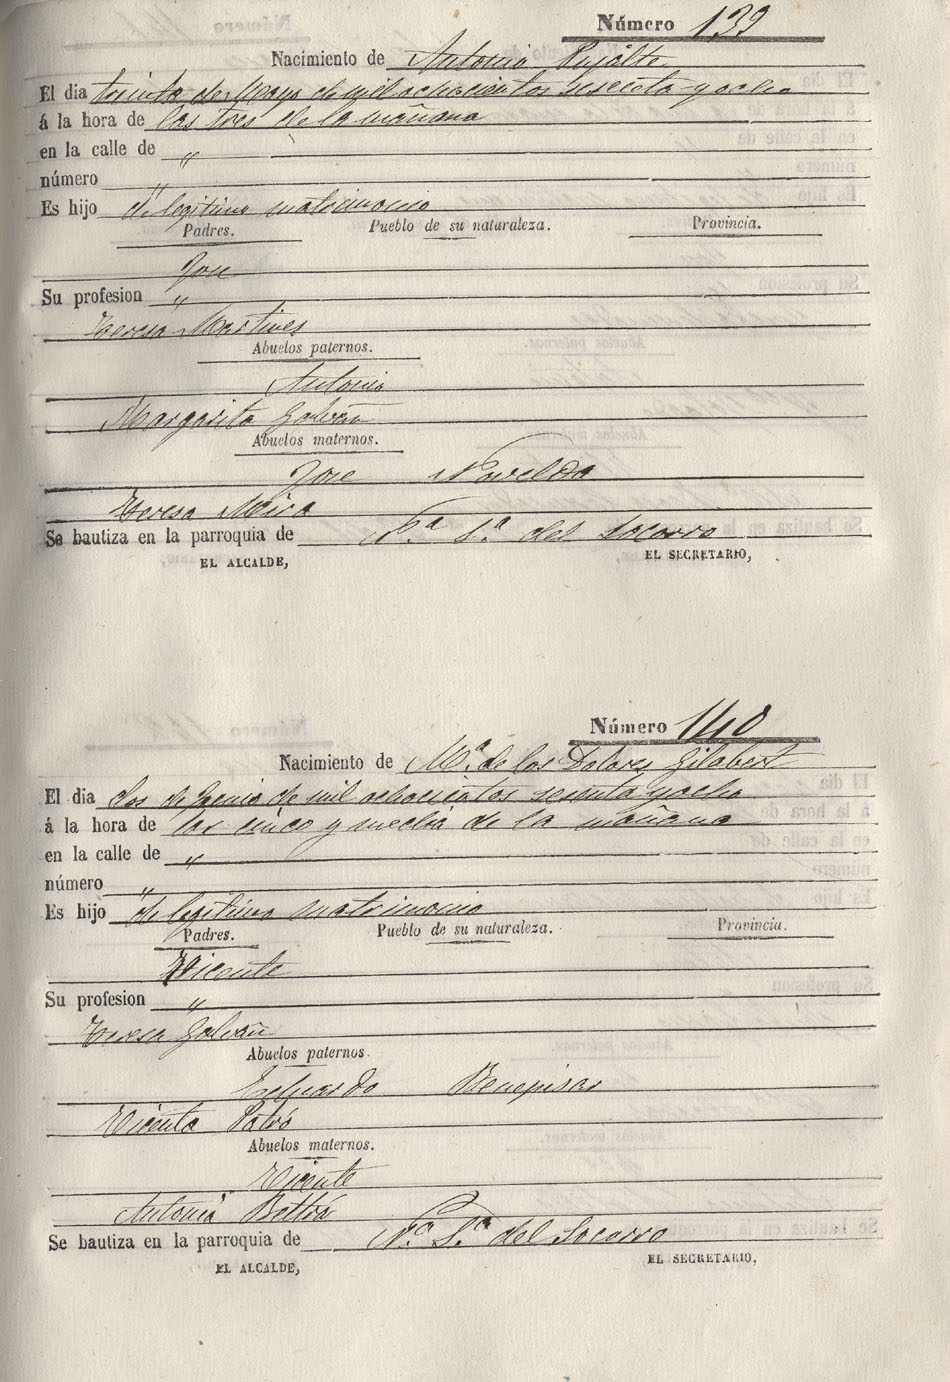 Número 139
Nacimiento de Antonio Pujalte
El dia treinta de Mayo de mil ochocientos sesenta y ocho
á la hora de las tres de la mañana
en la calle de "
número "
Es hijo de legitimo matrimonio
Padres. Pueblo de su naturaleza. Provincia.
Jose
Su profesion "
Teresa Martines
Abuelos paternos.
Antonio
Margarita Galvañ
Abuelos maternos.
Jose Novelda
Teresa Mira
Se bautiza en la parroquia de N.ª S.ª del Socorro
EL ALCALDE, EL SECRETARIO,
Número 140
Nacimiento de M.ª de los Dolores Gilabert
El dia dos de Junio de mil ochocientos sesenta y ocho
á la hora de las cinco y media de la mañana
en la calle de "
número "
Es hijo de legitimo matrimonio
Padres. Pueblo de su naturaleza. Provincia.
Vicente
Su profesion "
Teresa Galvañ
Abuelos paternos.
Eduardo
Vicenta
Abuelos maternos.
Vicente
Antonia Beltrá
Se bautiza en la parroquia de N.ª S.ª del Socorro
EL ALCALDE, EL SECRETARIO,